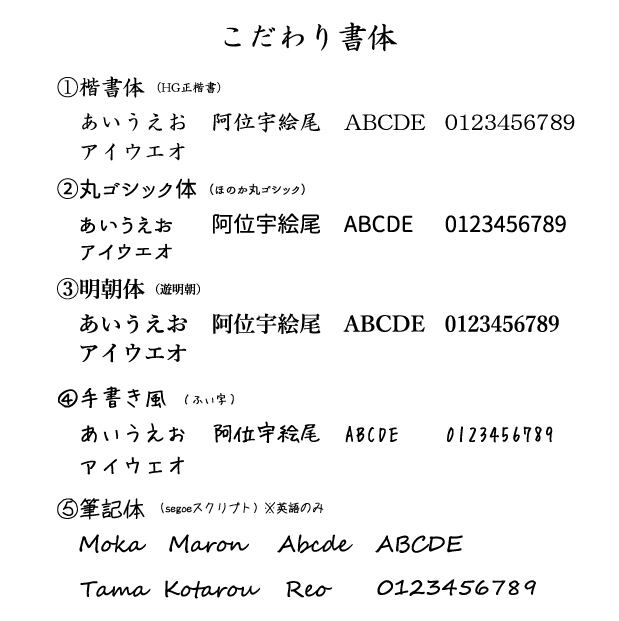 こだわり書体
①楷書体（HG正楷書）
あいうえお 阿位宇絵尾 ABCDE 0123456789
アイウエオ
②丸ゴシック体（ほのか丸ゴシック）
あいうえお 阿位宇絵尾 ABCDE 0123456789
アイウエオ
③明朝体（遊明朝）
あいうえお 阿位宇絵尾 ABCDE 0123456789
アイウエオ
④手書き風（ふい字）
あいうえお 阿位宇絵尾 ABCDE 0123456789
アイウエオ
⑤筆記体（segoeスクリプト）※英語のみ
Moka Maron Abcde ABCDE
Tama Kotarou Reo 0123456789